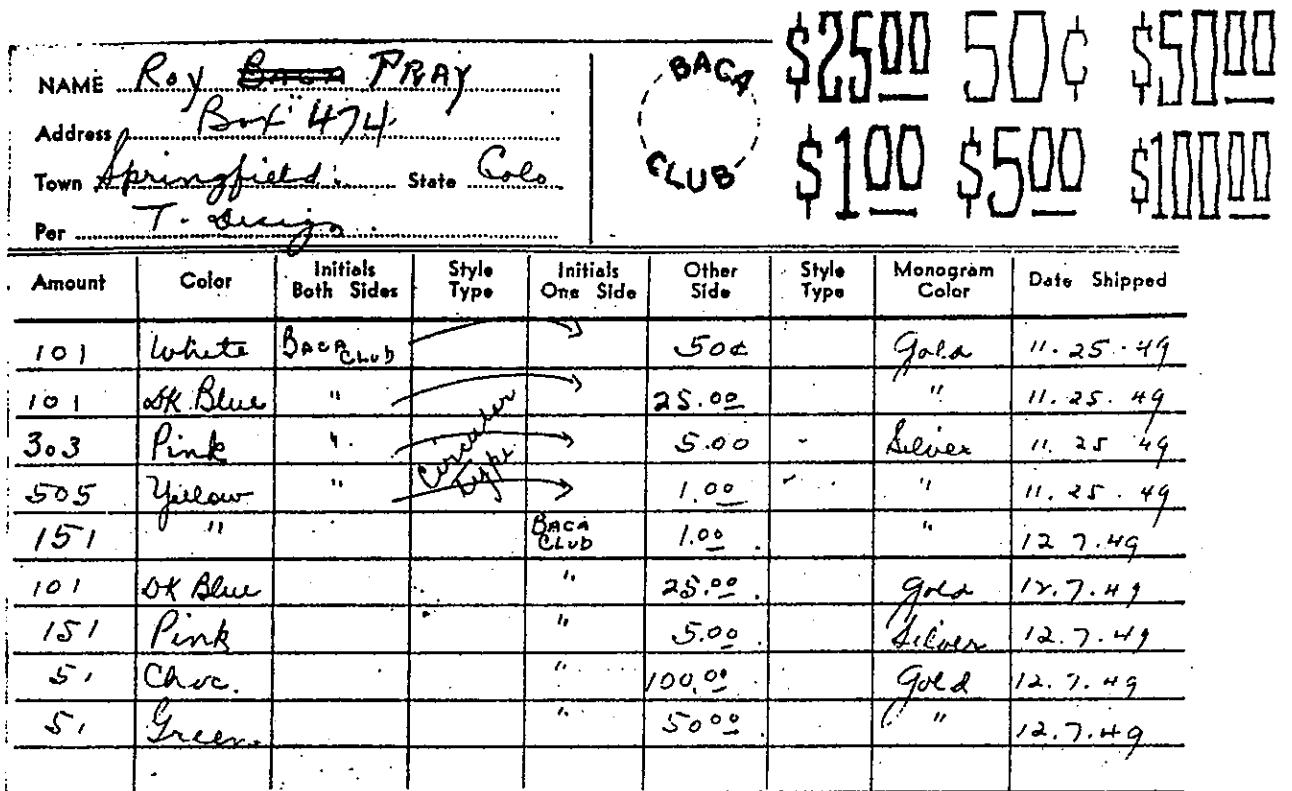 NAME Roy BACA PRAY
Address Box 474
Town Springfield State Colo
Per T. Design
BACA
CLUB
$25.00 50¢ $50.00
$1.00 $5.00 $100.00
Amount Color Initials Both Sides Style Type Initials One Side Other Side Style Type Monogram Color Date Shipped
101 White BACA CLUB 50¢ Gold 11.25.49
101 DK. Blue " 25.00 " 11.25.49
Circular Type
303 Pink " 5.00 Silver 11.25 49
505 Yellow " 1.00 " 11.25.49
151 " BACA CLUB 1.00 " 12 7.49
101 DK Blue " 25.00 Gold 12.7.49
151 Pink " 5.00 Silver 12.7.49
51 Choc. " 100.00 Gold 12.7.49
51 Green. " 50 00 " 12.7.49